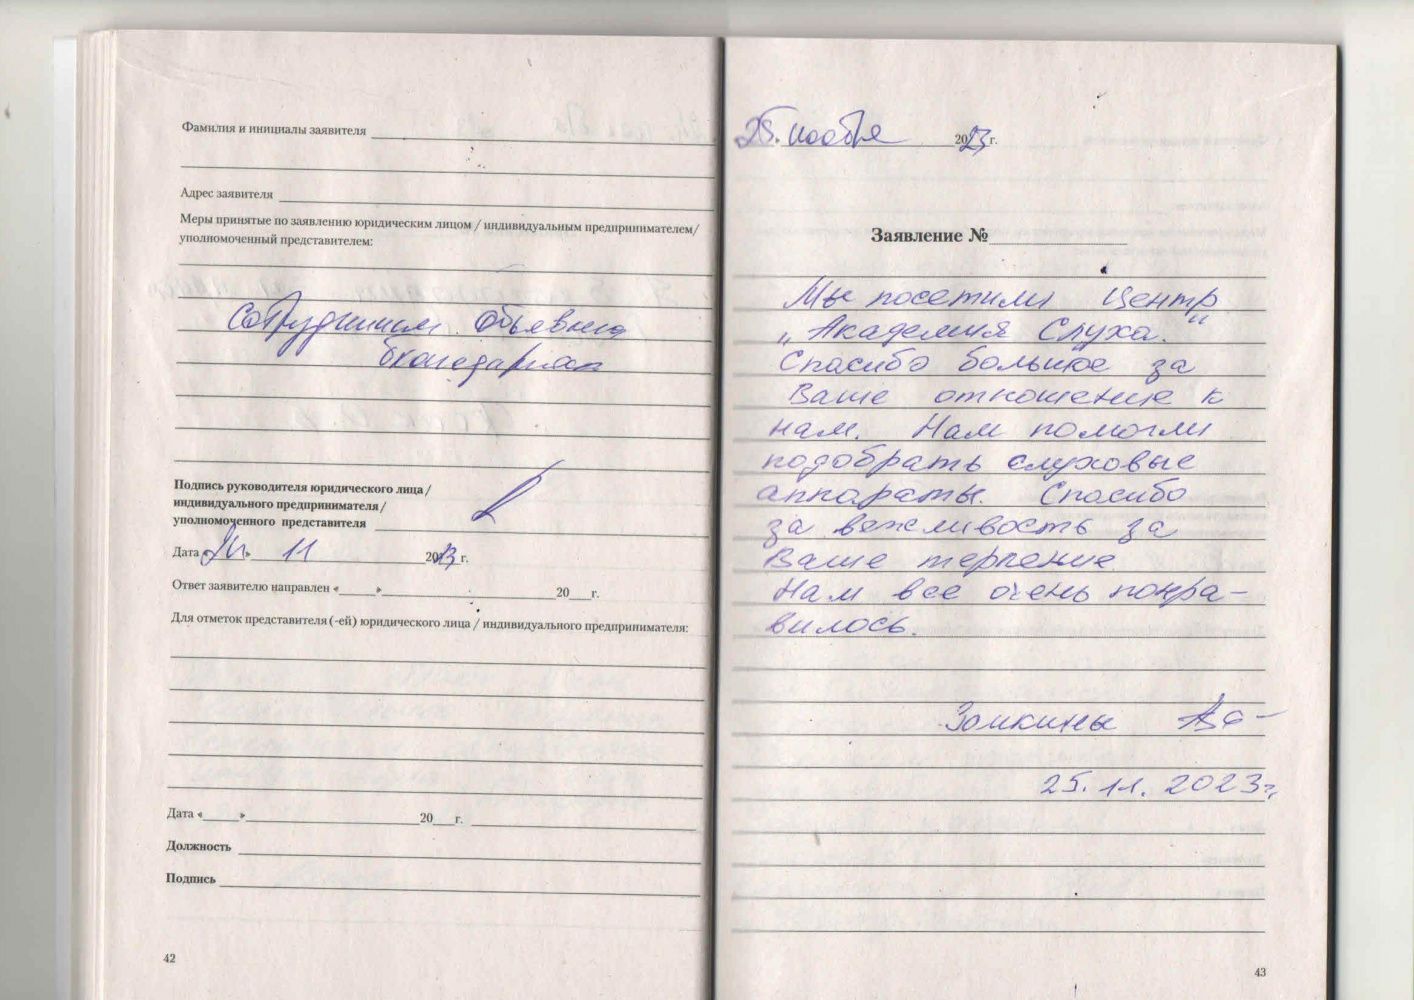 Фамилия и инициалы заявителя
Адрес заявителя
Меры принятые по заявлению юридическим лицом / индивидуальным предпринимателем/
уполномоченный представителем:
Сотрудникам объявлена
благодарность
Подпись руководителя юридического лица/
индивидуального предпринимателя/
уполномоченного представителя
Дата « » 11 2023 г.
Ответ заявителю направлен « » 20 г.
Для отметок представителя (-ей) юридического лица / индивидуального предпринимателя:
Дата « » 20 г.
Должность
Подпись
42
25. ноября 2023 г.
Заявление №
Мы посетили Центр
„Академия Слуха."
Спасибо большое за
Ваше отношение к
нам. Нам помогли
подобрать слуховые
аппараты. Спасибо
за вежливость за
Ваше терпение
Нам все очень понра-
вилось.
Заикины
25.11.2023г.
43